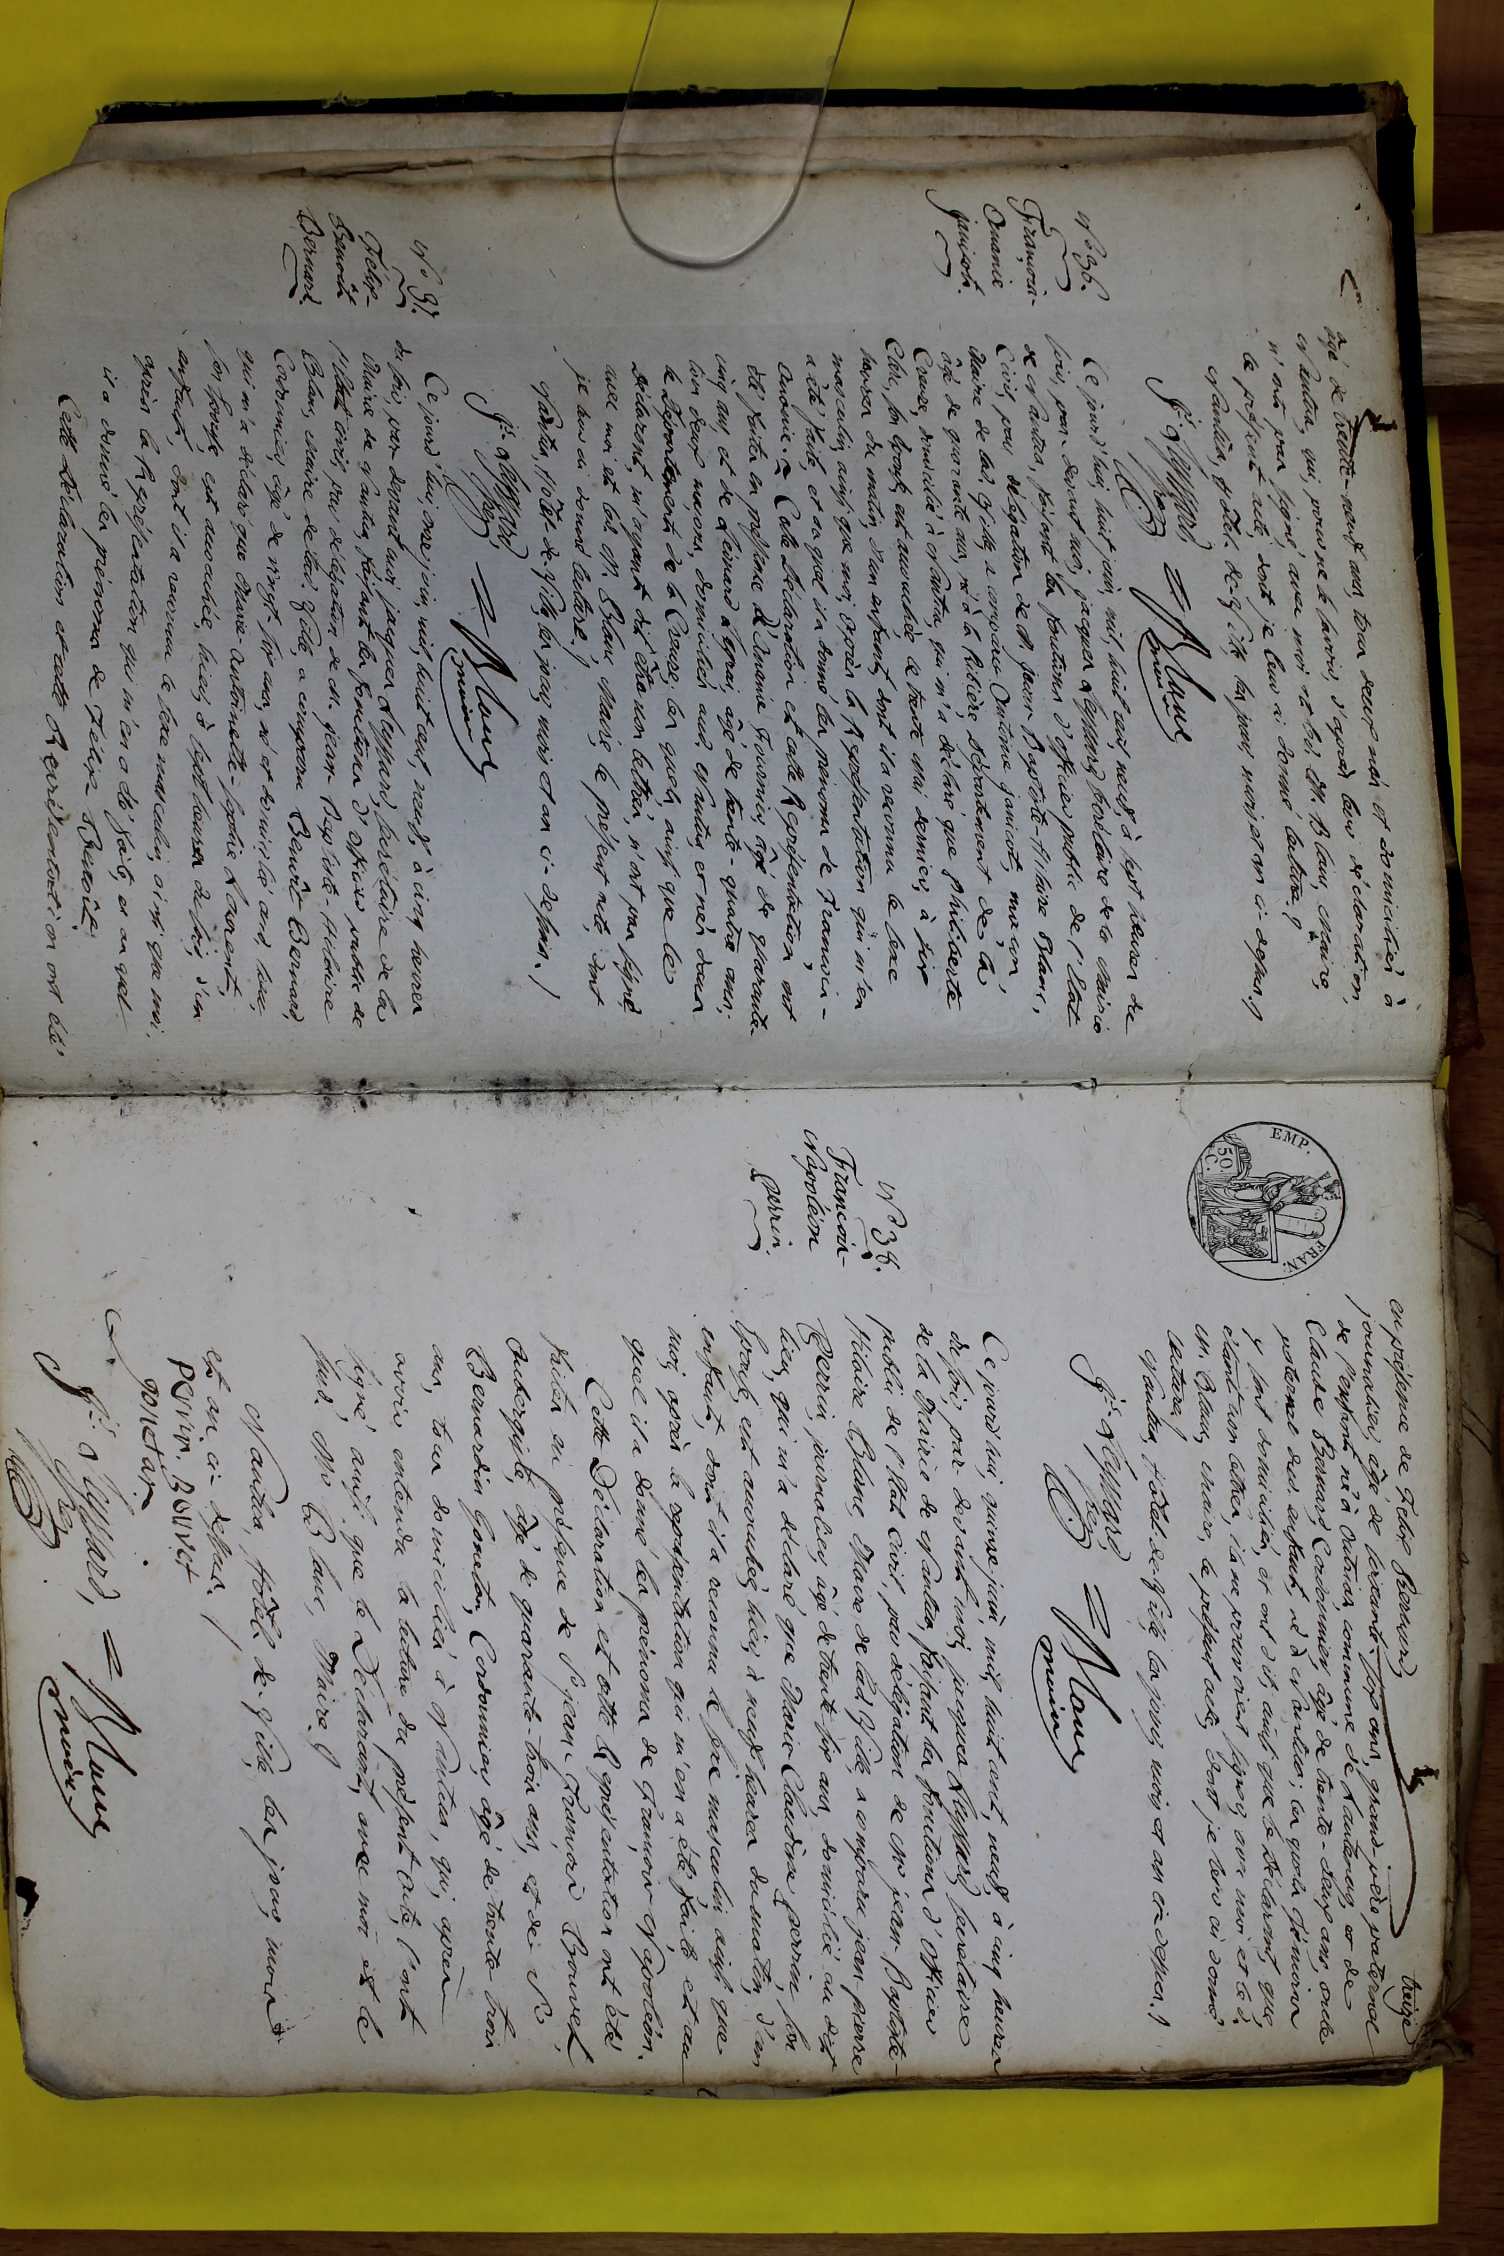 âgé de trente-neuf ans, tous deux nés et domiciliés à
Nantua, qui, pour ne le savoir, d'après leur déclaration,
n'ont pas signé, avec moi et led. M. Blanc, Maire,
le présent acte, dont je leur ai donné lecture.
Nantua, hôtel-de-Ville, les jour, mois et an ci-dessus.
Blanc
maire
N° 36.
François-
Onanie
janisot.
Ce jourd'hui, huit juin, mil, huit cent, neuf, à sept heures du
soir, par-devant moi, jacques secrétaire de la Mairie
de Nantua, faisant les fonctions d'officier public de l'état
Civil, par délégation de M. jean-Baptiste-Hilaire Blanc,
Maire de lad. Ville, a comparu Antoine janicot, maçon,
âgé de quarante ans, né à la Ribière, département de la
Creuse, domicilié à Nantua, qui m'a déclaré que philiberte
Clerc, son épouse, est accouchée le trente mai dernier, à six
heures du matin, d'un enfant, dont il a reconnu le sexe
masculin, ainsi que moi, après la Représentation qui m'en
a été faite, et auquel il a donné les prénoms de François-
Onanie. Cette Déclaration et cette Représentation, ont
été faites en présence d'Onanie Fournier, âgé de quarante-
cinq ans, et de Léonard âgé de trente-quatre ans,
tous deux maçons, domiciliés aud. Nantua et nés dans
le Département de la Creuse, lesquels, ainsi que le
Déclarant, m'ayant dit être non lettrés, n'ont pas signé
avec moi et led. M. Blanc, Maire, le présent acte, dont
je leur ai donné lecture.
Nantua, Hôtel-de-Ville, les jour, mois et an ci-dessus.
Blanc
maire
N° 37.
Félix-
Benoît
Bernard.
Ce jourd'hui, onze juin, mil, huit cent, neuf, à cinq heures
du soir, par devant moi jacques secrétaire de la
Mairie de Nantua, faisant les fonctions d'officier public de
l'état civil, par délégation de M. jean-Baptiste-Hilaire
Blanc, Maire de lad. Ville, a comparu Benoît Bernard,
Cordonnier, âgé de vingt six ans, né et domicilié aud. lieu,
qui m'a déclaré que Marie-Antoinette-Sophie
son épouse, est accouchée, hier, à sept heures du soir, d'un
enfant, dont il a reconnu le sexe masculin, ainsi que moi,
après la Représentation qui m'en a été faite, et auquel
il a donné les prénoms de Félix-Benoît.
Cette déclaration et cette Représentation ont été
treize
EMP. FRAN.
50 C.
en présence de Felix Bernard,
journalier, âgé de soixante-six ans, grand-père paternel
de l'enfant, né à commune de et de
Claude Bernard, Cordonnier, âgé de trente-deux ans, oncle
paternel dud. enfant, né à Nantua; lesquels témoins
y sont domiciliés, et ont dit, ainsi que le Déclarant, que,
étant non lettrés, ils ne pouvoient signer, avec moi et led.
M. Blanc, Maire, le présent acte, dont je leur ai donné
lecture.
Nantua, hôtel-de-Ville, les jour, mois et an ci-dessus.
Blanc
maire
N° 38.
François-
Napoléon
perrin.
Ce jourd'hui, quinze juin, mil, huit cent, neuf, à cinq heures
du soir, par-devant moi, jacques secrétaire
de la Mairie de Nantua, faisant les fonctions d'officier
public de l'état Civil, par délégation de Mr jean-Baptiste-
Hilaire Blanc, Maire de lad. Ville, a comparu jean-pierre
Perrin, journalier, âgé de trente six ans, domicilié au dit
lieu, qui m'a déclaré que Marie Claudine perrin, son
épouse, est accouchée, hier, à neuf heures du matin, d'un
enfant, dont il a reconnu le sexe masculin, ainsi que
moi, après la représentation qui m'en a été faite, et au
quel il a donné les prénoms de François-Napoléon.
Cette Déclaration et cette Représentation ont été
faites en présence de Sr jean-François Bouvet,
Aubergiste, âgé de quarante-trois ans, et de Sr
Bernardin Goneton, Cordonnier, âgé de trente trois
ans, tous domiciliés à Nantua, qui, après
avoir entendu la lecture du présent acte, l'ont
signé, ainsi que le Déclarant, avec moi et le
susd. Mr Blanc, Maire.
Nantua, hôtel de-Ville, les jour, mois
et an ci-dessus.
perrin. Bouvet
gonetan
Blanc
maire